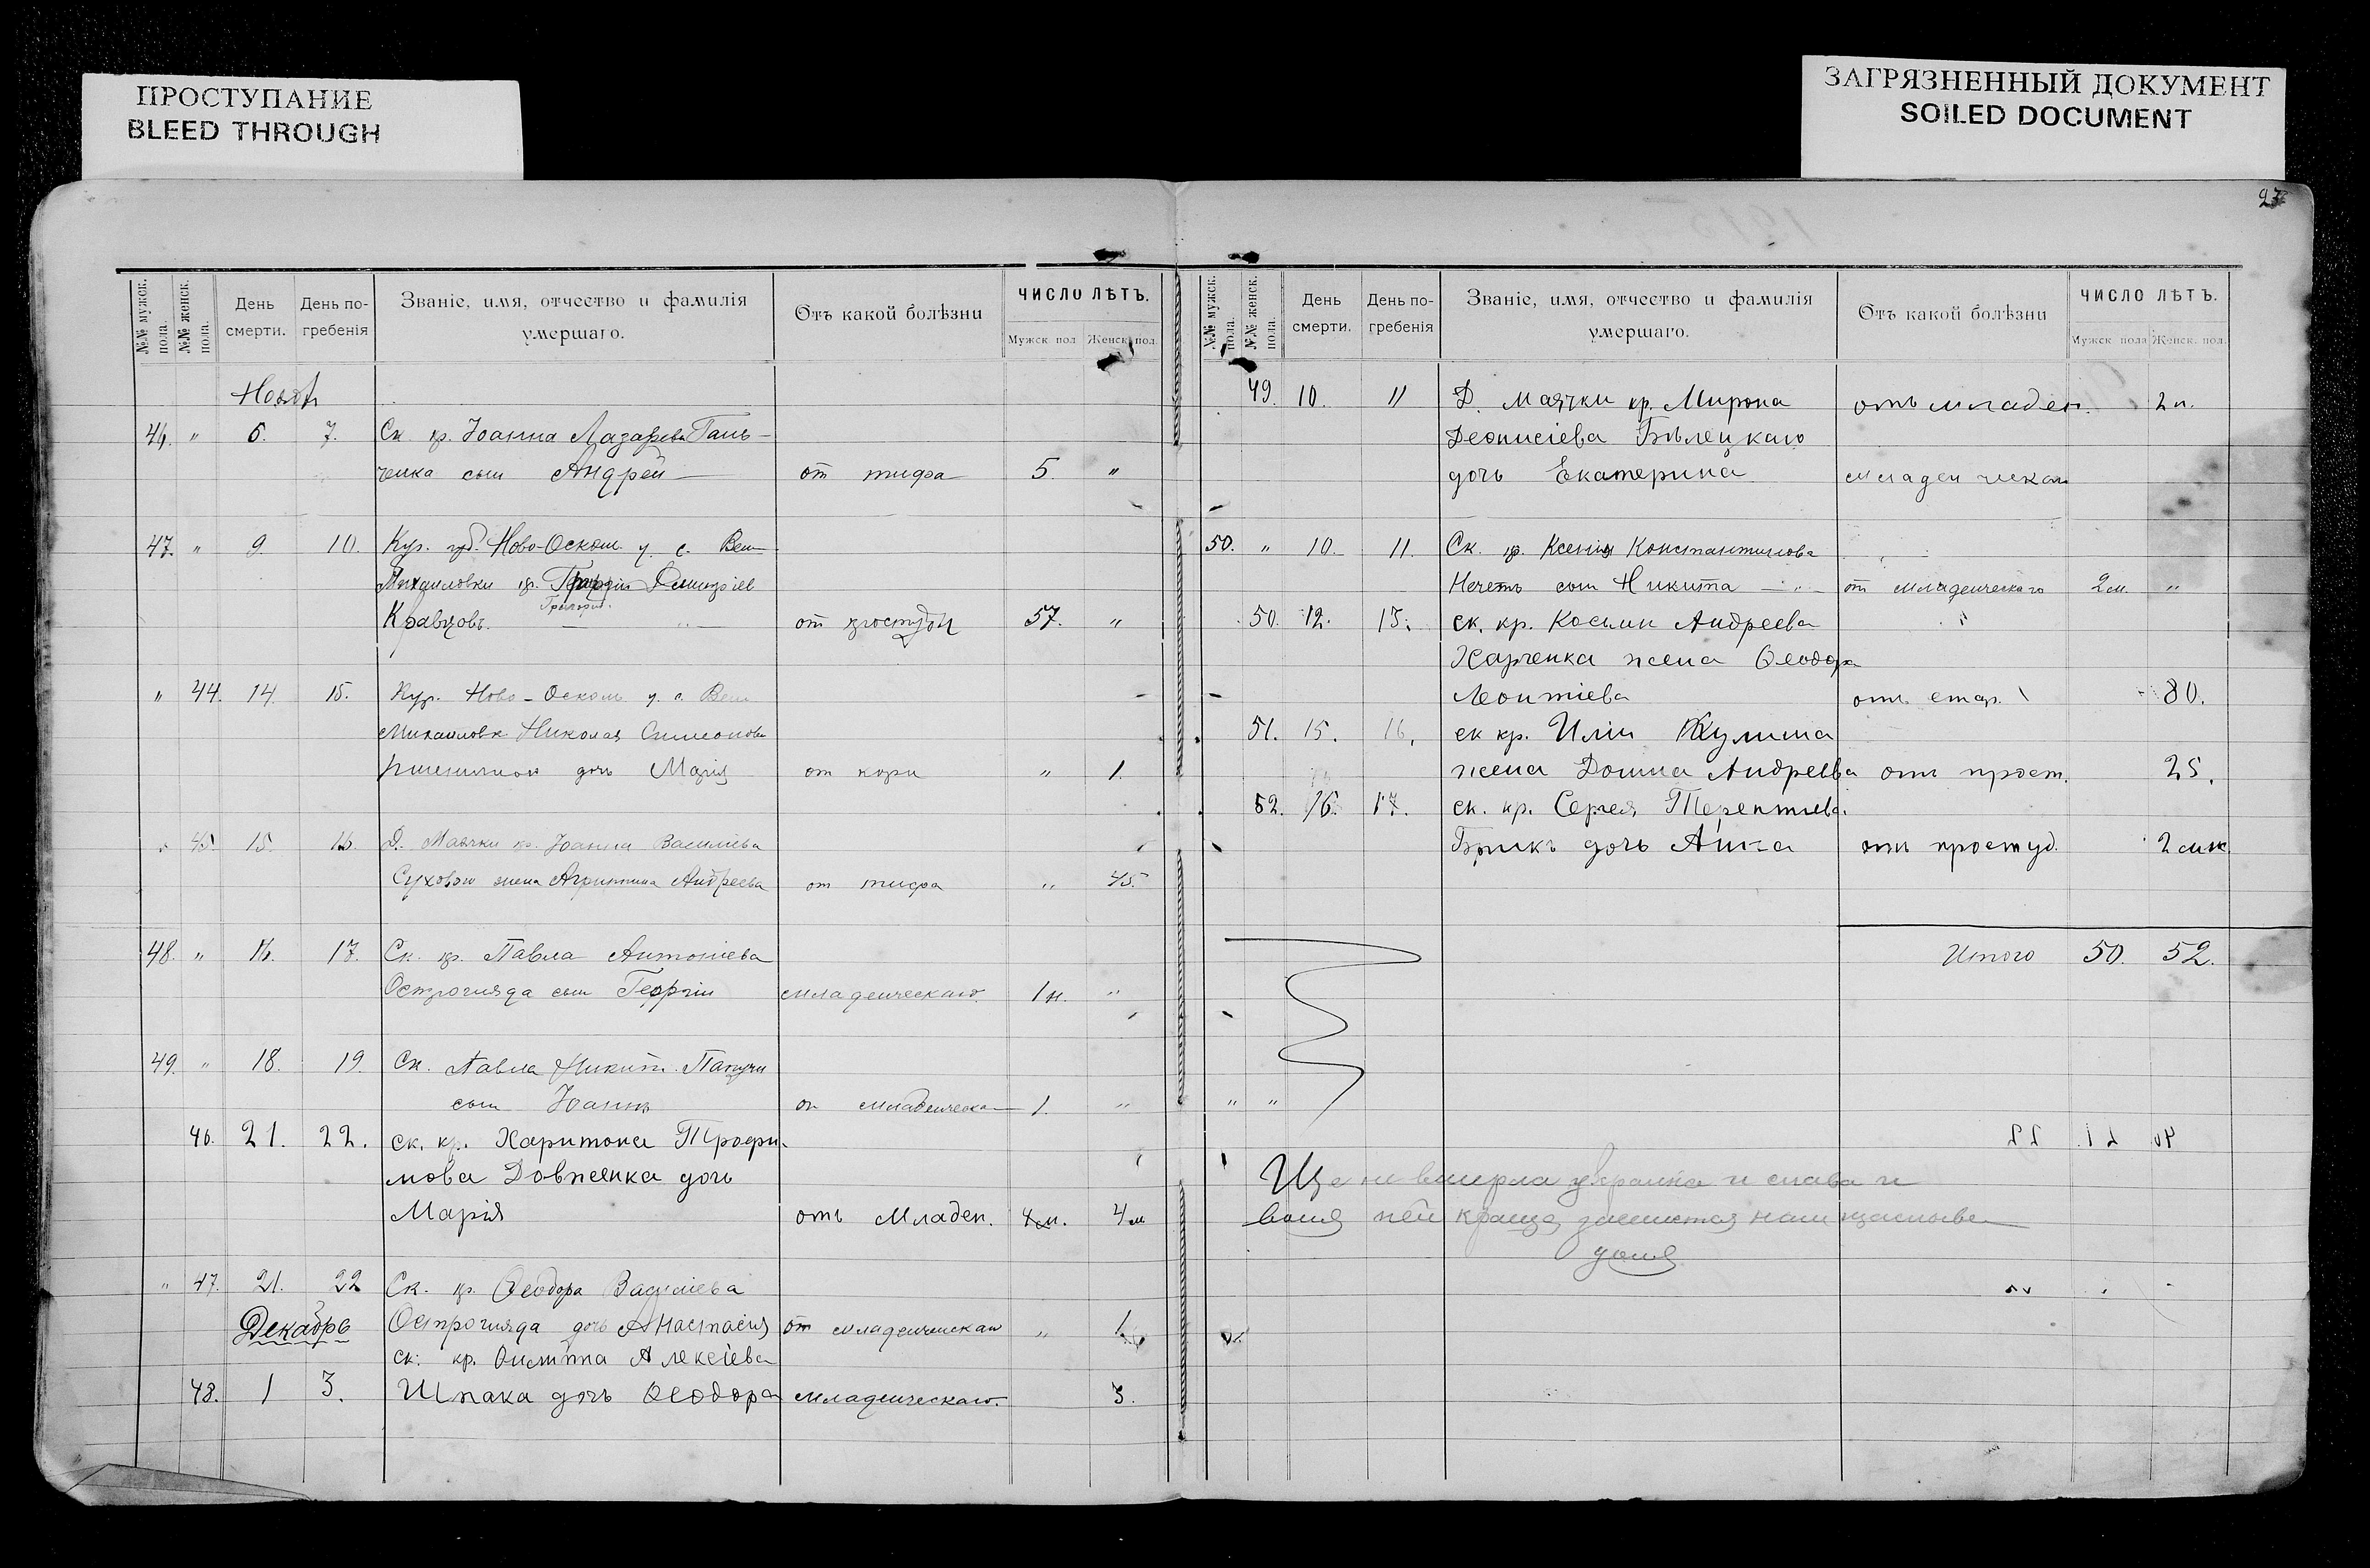 ПРОСТУПАНИЕ
BLEED THROUGH
ЗАГРЯЗНЕННЫЙ ДОКУМЕНТ
SOILED DOCUMENT
27
№№ мужск. пола.
№№ женск. пола.
День смерти.
День по-гребенія
Званіе, имя, отчество и фамилія умершаго.
Отъ какой болѣзни
ЧИСЛО ЛѢТЪ.
Мужск пол
Женск пол.
46. " 6. 7. Ск. кр. Іоанна Лазарева Ган-
ченка сын Андрей — от тифа 5. "
47. " 9. 10. Кур. губ. Ново-Оскол. у. с. Вел
Михаиловки кр. Димитріев
Григорій.
Кравцовъ. от простуды 57. "
" 44. 14. 15. Кур. Ново-Осколь у. с. Вел
Михаиловк Николая Симонова
дочь Марія от кори " 1.
" 45. 15. 16. Д. Маячки кр. Іоанна Василіева
Суховою жена Агрипина Андреева от тифа " 45.
48. " 16. 17. Ск. кр. Павла Антоніева
Острогляда сын Георгій младенческаго 1 н. "
49. " 18. 19. Ск. Павла Никит.
сын Іоаннъ от младенческа 1. "
46. 21. 22. ск. кр. Харитона Трофи-
мова Довженка дочь
Марія отъ Младен. 4м. 4м
" 47. 21. 22 Ск. кр. Ѳеодора Василіева
Декабрь
Острогляда дочь Анастасія от младенческаго " 1
ск. кр. Алексіева
48. 1 3. Шпака дочь Ѳеодора младенческаго. 3.
№№ мужск. пола.
№№ женск. пола.
День смерти.
День по-гребенія
Званіе, имя, отчество и фамилія умершаго.
Отъ какой болѣзни
ЧИСЛО ЛѢТЪ.
Мужск пола
Женск. пол.
49. 10. 11 Д. Маячки кр. Мирона отъ младен. 2 н.
Деонисіева Бѣлецкаго
дочь Екатерина
50. " 10. 11. Ск. кр. Ксенія Константинова
Нечетъ сын Никита — " — от младенческаго 2 м. "
50. 12. 13. ск. кр. Космы Андреева
Харченка жена Ѳеодора
Леонтіева отъ стар. 80.
51. 15. 16. ск кр. Иліи Жулина
жена Домна Андреева отъ прост. 25.
52. 16. 17. ск. кр. Сергея Терентіева
дочь Анна отъ простуд. 2 мѣс
Итого 50. 52.
" "
Ще не вмерла украина и слава и
воля
доля